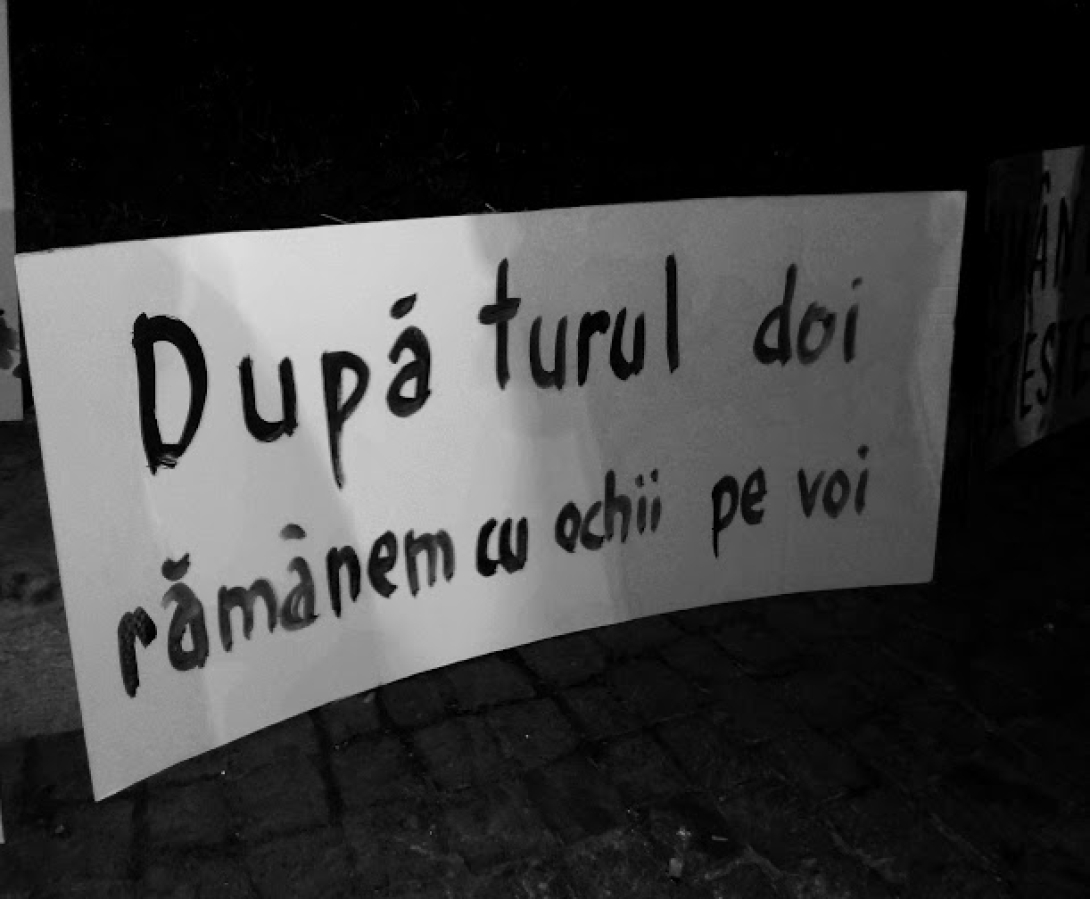 După turul doi
rămânem cu ochii pe voi